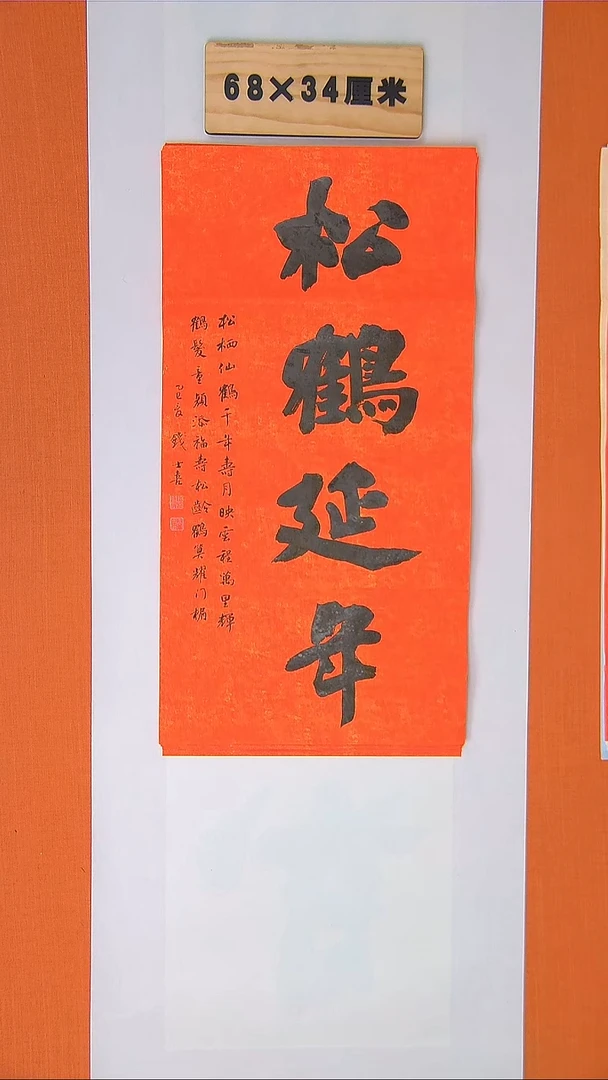 68×34厘米
松鶴延年
松栖仙鶴千年壽月映雲程萬里輝
鶴髮童顏添福壽松齡鶴算耀门楣
乙巳 錢